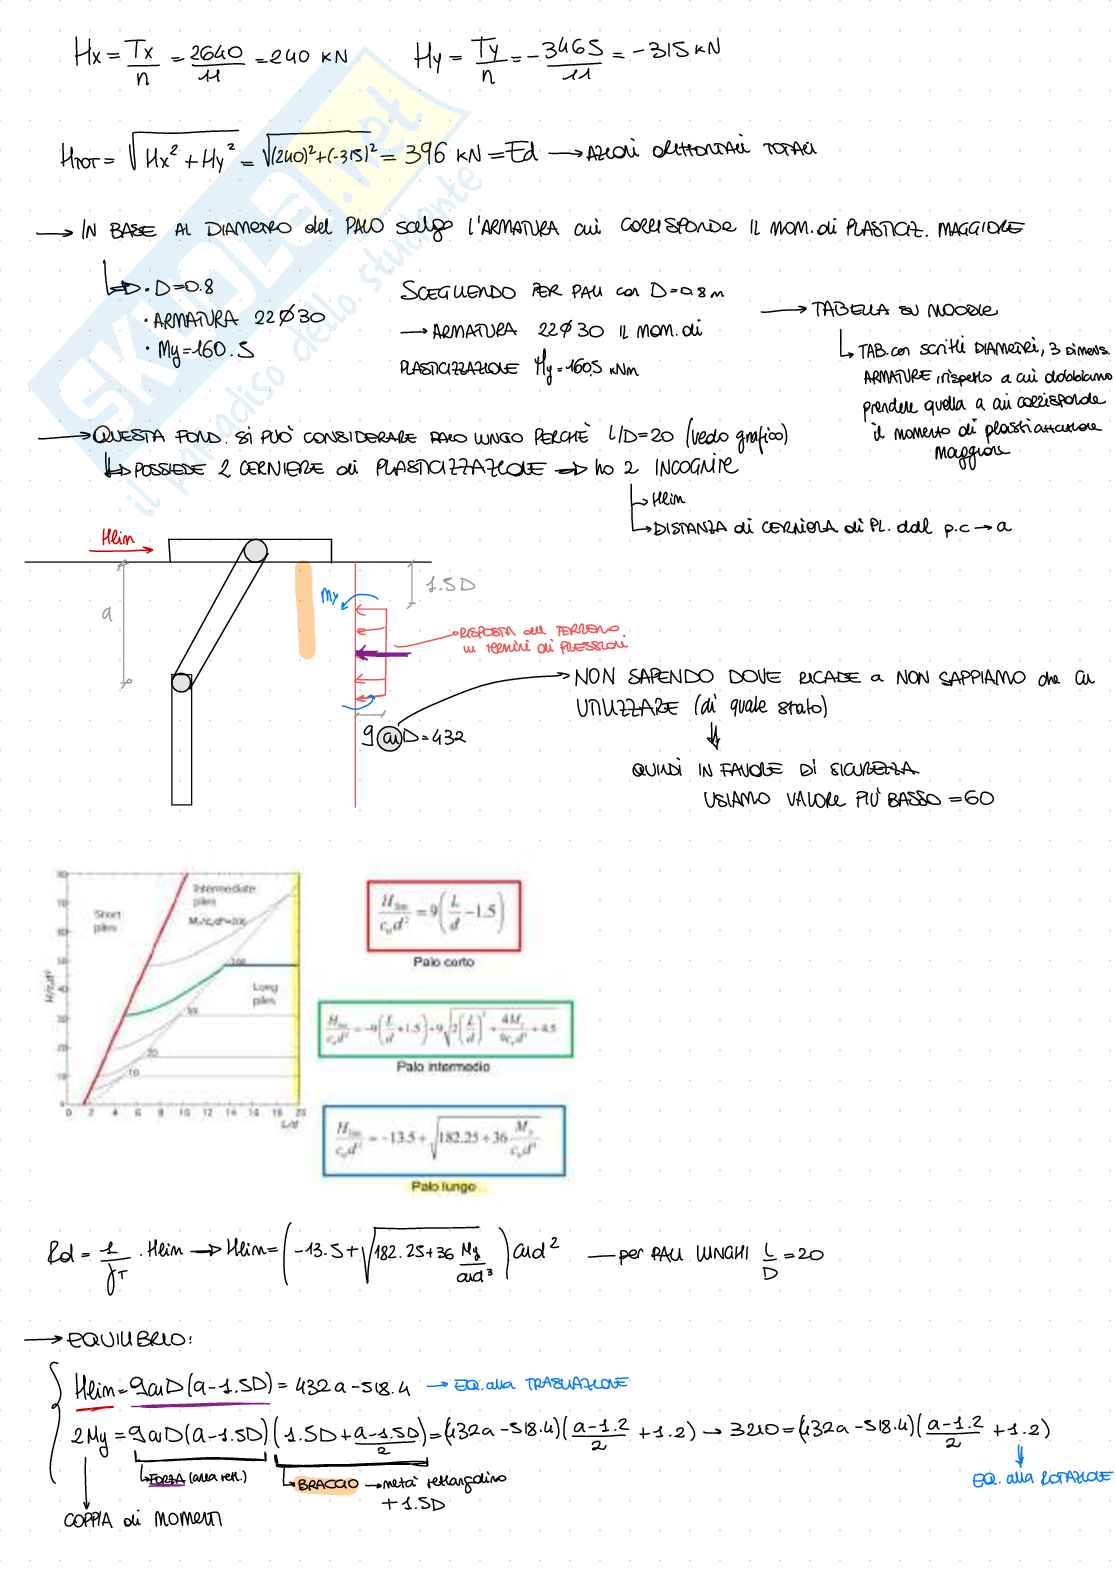 Hx = Tx/n = 2640/11 = 240 KN    Hy = Ty/n = -3465/11 = -315 KN
HTOT = √(Hx² + Hy²) = √((240)²+(-315)²) = 396 KN = Ed → AZIONI ORIZZONTALI TOTALI
→ IN BASE AL DIAMETRO del PALO scelgo L'ARMATURA cui CORRISPONDE IL MOM. di PLASTICIZ. MAGGIORE
• D=0.8
• ARMATURA 22Ø30
• My=160.5
SCEGLIENDO PER PALI con D=0.8m
→ ARMATURA 22Ø30 IL MOM. di
PLASTICIZZAZIONE My=1605 KNm
→ TABELLA SU MOODLE
TAB. con scritti DIAMETRI, 3 dimens.
ARMATURE, rispetto a cui dobbiamo
prendere quella a cui corrisponde
il momento di plasticizzazione
maggiore
→ QUESTA FOND. SI PUÒ CONSIDERARE PALO LUNGO PERCHÈ L/D=20 (vedo grafico)
POSSIEDE 2 CERNIERE di PLASTICIZZAZIONE → ho 2 INCOGNITE
Hlim
DISTANZA di CERNIERA di PL. dal p.c → a
Hlim
a
My
1.5D
RISPOSTA del TERRENO
in TERMINI di PRESSIONI
9cuD=432
NON SAPENDO DOVE RICADE a NON SAPPIAMO che cu
UTILIZZARE (di quale strato)
QUINDI IN FAVORE DI SICUREZZA
USIAMO VALORE PIÙ BASSO = 60
Short
piles
Intermediate
piles
Long
piles
H/cud²
0 2 4 6 8 10 12 14 16 18 20
L/d
Hlim/cud² = 9(L/d − 1.5)
Palo corto
Hlim/cud² = −9(L/d + 1.5) + 9√(2(L/d)² + 4My/9cud³ + 4.5)
Palo intermedio
Hlim/cud² = −13.5 + √(182.25 + 36 My/cud³)
Palo lungo
Rd = 1/γT · Hlim → Hlim = (-13.5+√(182.25+36 My/cud³)) cud² — per PALI LUNGHI L/D = 20
→ EQUILIBRIO:
Hlim = 9cuD(a-1.5D) = 432a-518.4 → EQ. alla TRASLAZIONE
2My = 9cuD(a-1.5D)(1.5D + (a-1.5D)/2) = (432a-518.4)((a-1.2)/2 + 1.2) → 3210 = (432a-518.4)((a-1.2)/2 + 1.2)
FORZA (area rett.)
BRACCIO → metà rettangolino
+ 1.5D
EQ. alla ROTAZIONE
COPPIA di MOMENTI
SKUOLA.net
il paradiso dello studente